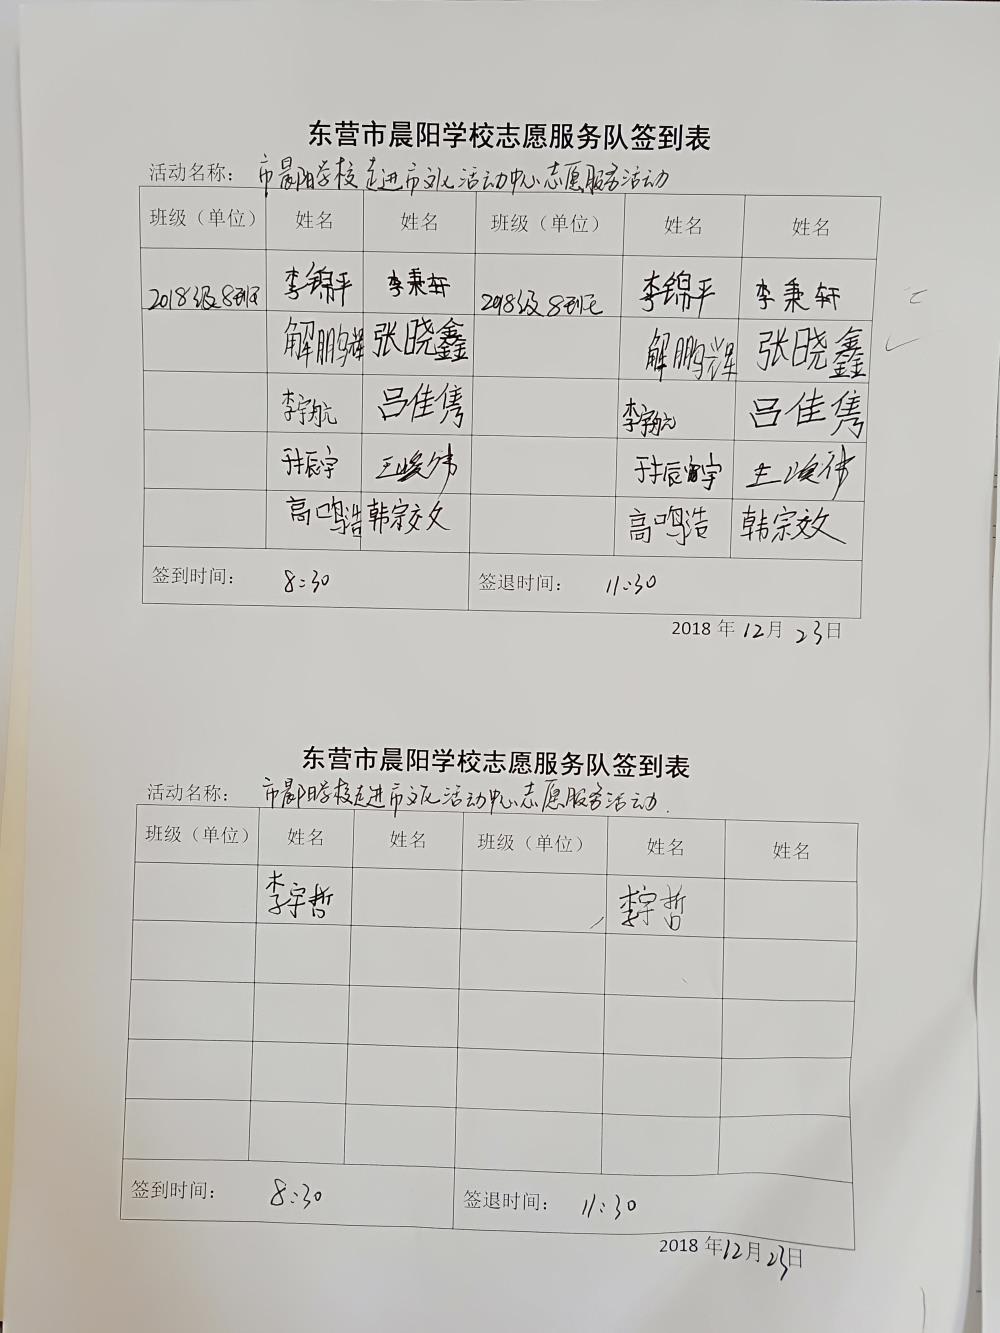 东营市晨阳学校志愿服务队签到表
活动名称： 市晨阳学校走进市文化活动中心志愿服务活动
班级（单位） 姓名 姓名 班级（单位） 姓名 姓名
2018级8班 李锦平 李秉轩 2018级8班 李锦平 李秉轩
解鹏辉 张晓鑫 解鹏辉 张晓鑫
李宇航 吕佳隽 李宇航 吕佳隽
辰宇 王峻伟 辰宇 王峻伟
高鸣浩 韩宗文 高鸣浩 韩宗效
签到时间： 8:30 签退时间： 11:30
2018 年 12 月 23 日
东营市晨阳学校志愿服务队签到表
活动名称： 市晨阳学校走进市文化活动中心志愿服务活动.
班级（单位） 姓名 姓名 班级（单位） 姓名 姓名
李宇哲 李宇哲
签到时间： 8:30 签退时间： 11:30
2018 年 12 月 23 日